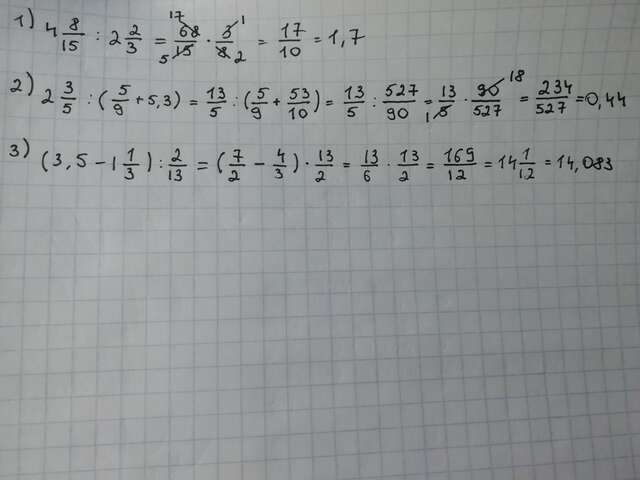 1) 4 8/15 : 2 2/3 = 68/15 · 3/8 = 17/10 = 1,7
2) 2 3/5 : (5/9 + 5,3) = 13/5 : (5/9 + 53/10) = 13/5 : 527/90 = 13/5 · 90/527 = 234/527 = 0,44
3) (3,5 - 1 1/3) : 2/13 = (7/2 - 4/3) · 13/2 = 13/6 · 13/2 = 169/12 = 14 1/12 = 14,083